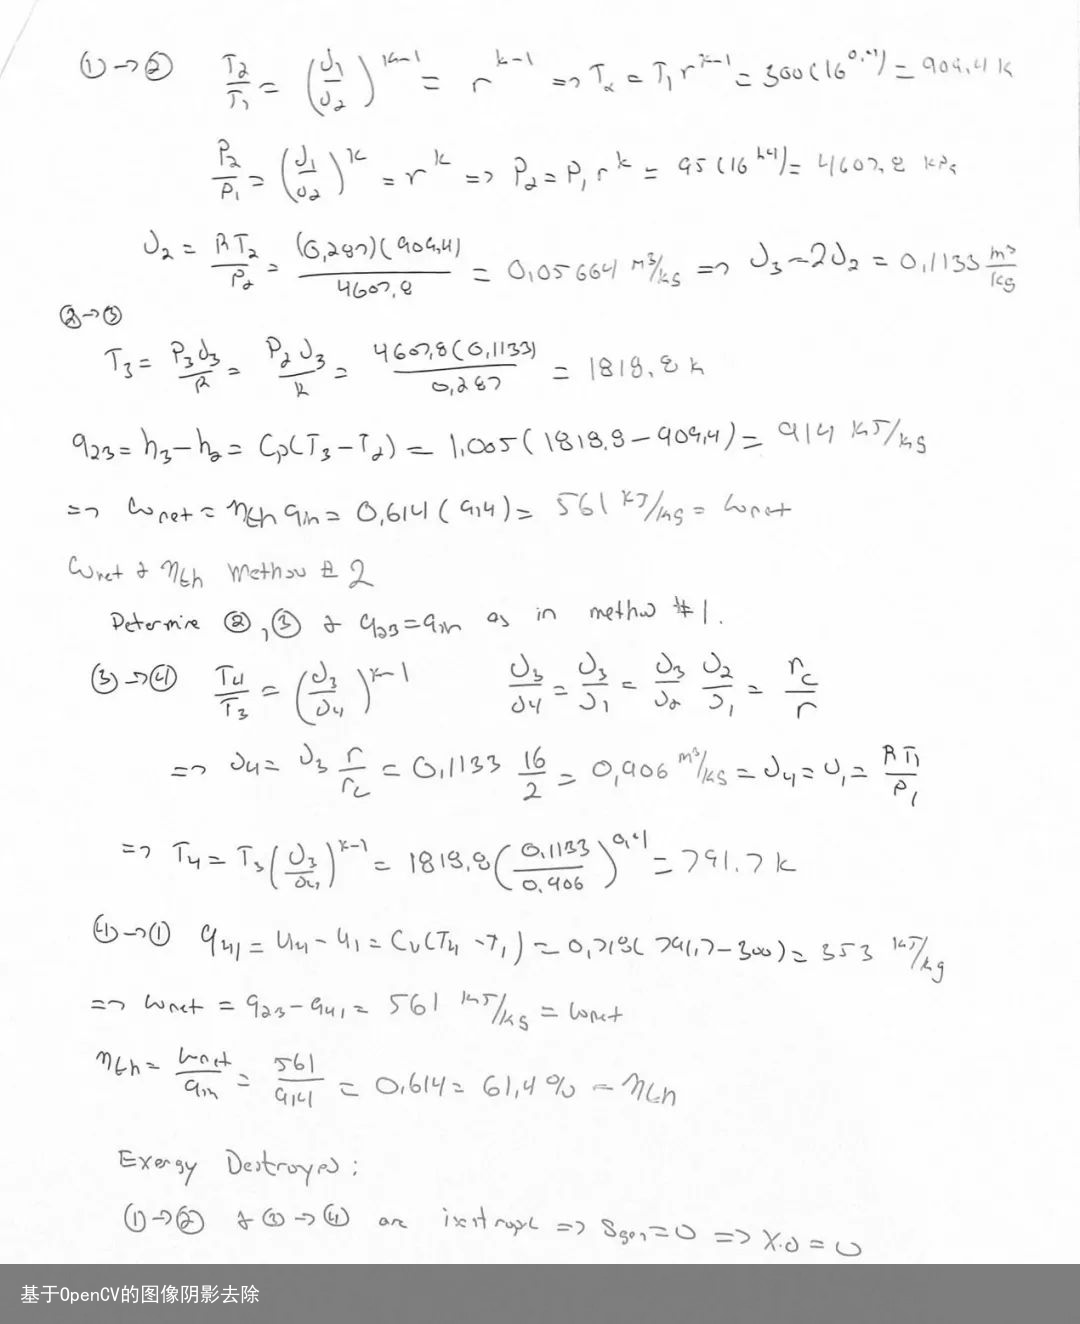 ① → ② T2/T1 = (υ1/υ2)^(k-1) = r^(k-1) => T2 = T1 r^(k-1) = 300(16^0.4) = 909.4 K
P2/P1 = (υ1/υ2)^k = r^k => P2 = P1 r^k = 95(16^1.4) = 4607.8 kPa
υ2 = RT2/P2 = (0.287)(909.4)/4607.8 = 0.05664 m³/kg => υ3 = 2υ2 = 0.1133 m³/kg
② → ③
T3 = P3υ3/R = P2υ3/R = 4607.8(0.1133)/0.287 = 1818.8 K
q23 = h3 - h2 = Cp(T3 - T2) = 1.005(1818.8 - 909.4) = 914 kJ/kg
=> wnet = ηth qin = 0.614(914) = 561 kJ/kg = wnet
wnet & ηth Method # 2
Determine ②, ③ & q23 = qin as in method #1.
③ → ④ T4/T3 = (υ3/υ4)^(k-1) υ3/υ4 = υ3/υ1 = υ3/υ2 υ2/υ1 = rc/r
=> υ4 = υ3 r/rc = 0.1133 16/2 = 0.906 m³/kg = υ4 = υ1 = RT1/P1
=> T4 = T3(υ3/υ4)^(k-1) = 1818.8(0.1133/0.906)^0.4 = 791.7 K
④ → ① q41 = u4 - u1 = Cv(T4 - T1) = 0.718(791.7 - 300) = 353 kJ/kg
=> wnet = q23 - q41 = 561 kJ/kg = wnet
ηth = wnet/qin = 561/914 = 0.614 = 61.4% = ηth
Exergy Destroyed:
① → ② & ③ → ④ are isentropic => Sgen = 0 => XD = 0
基于OpenCV的图像阴影去除